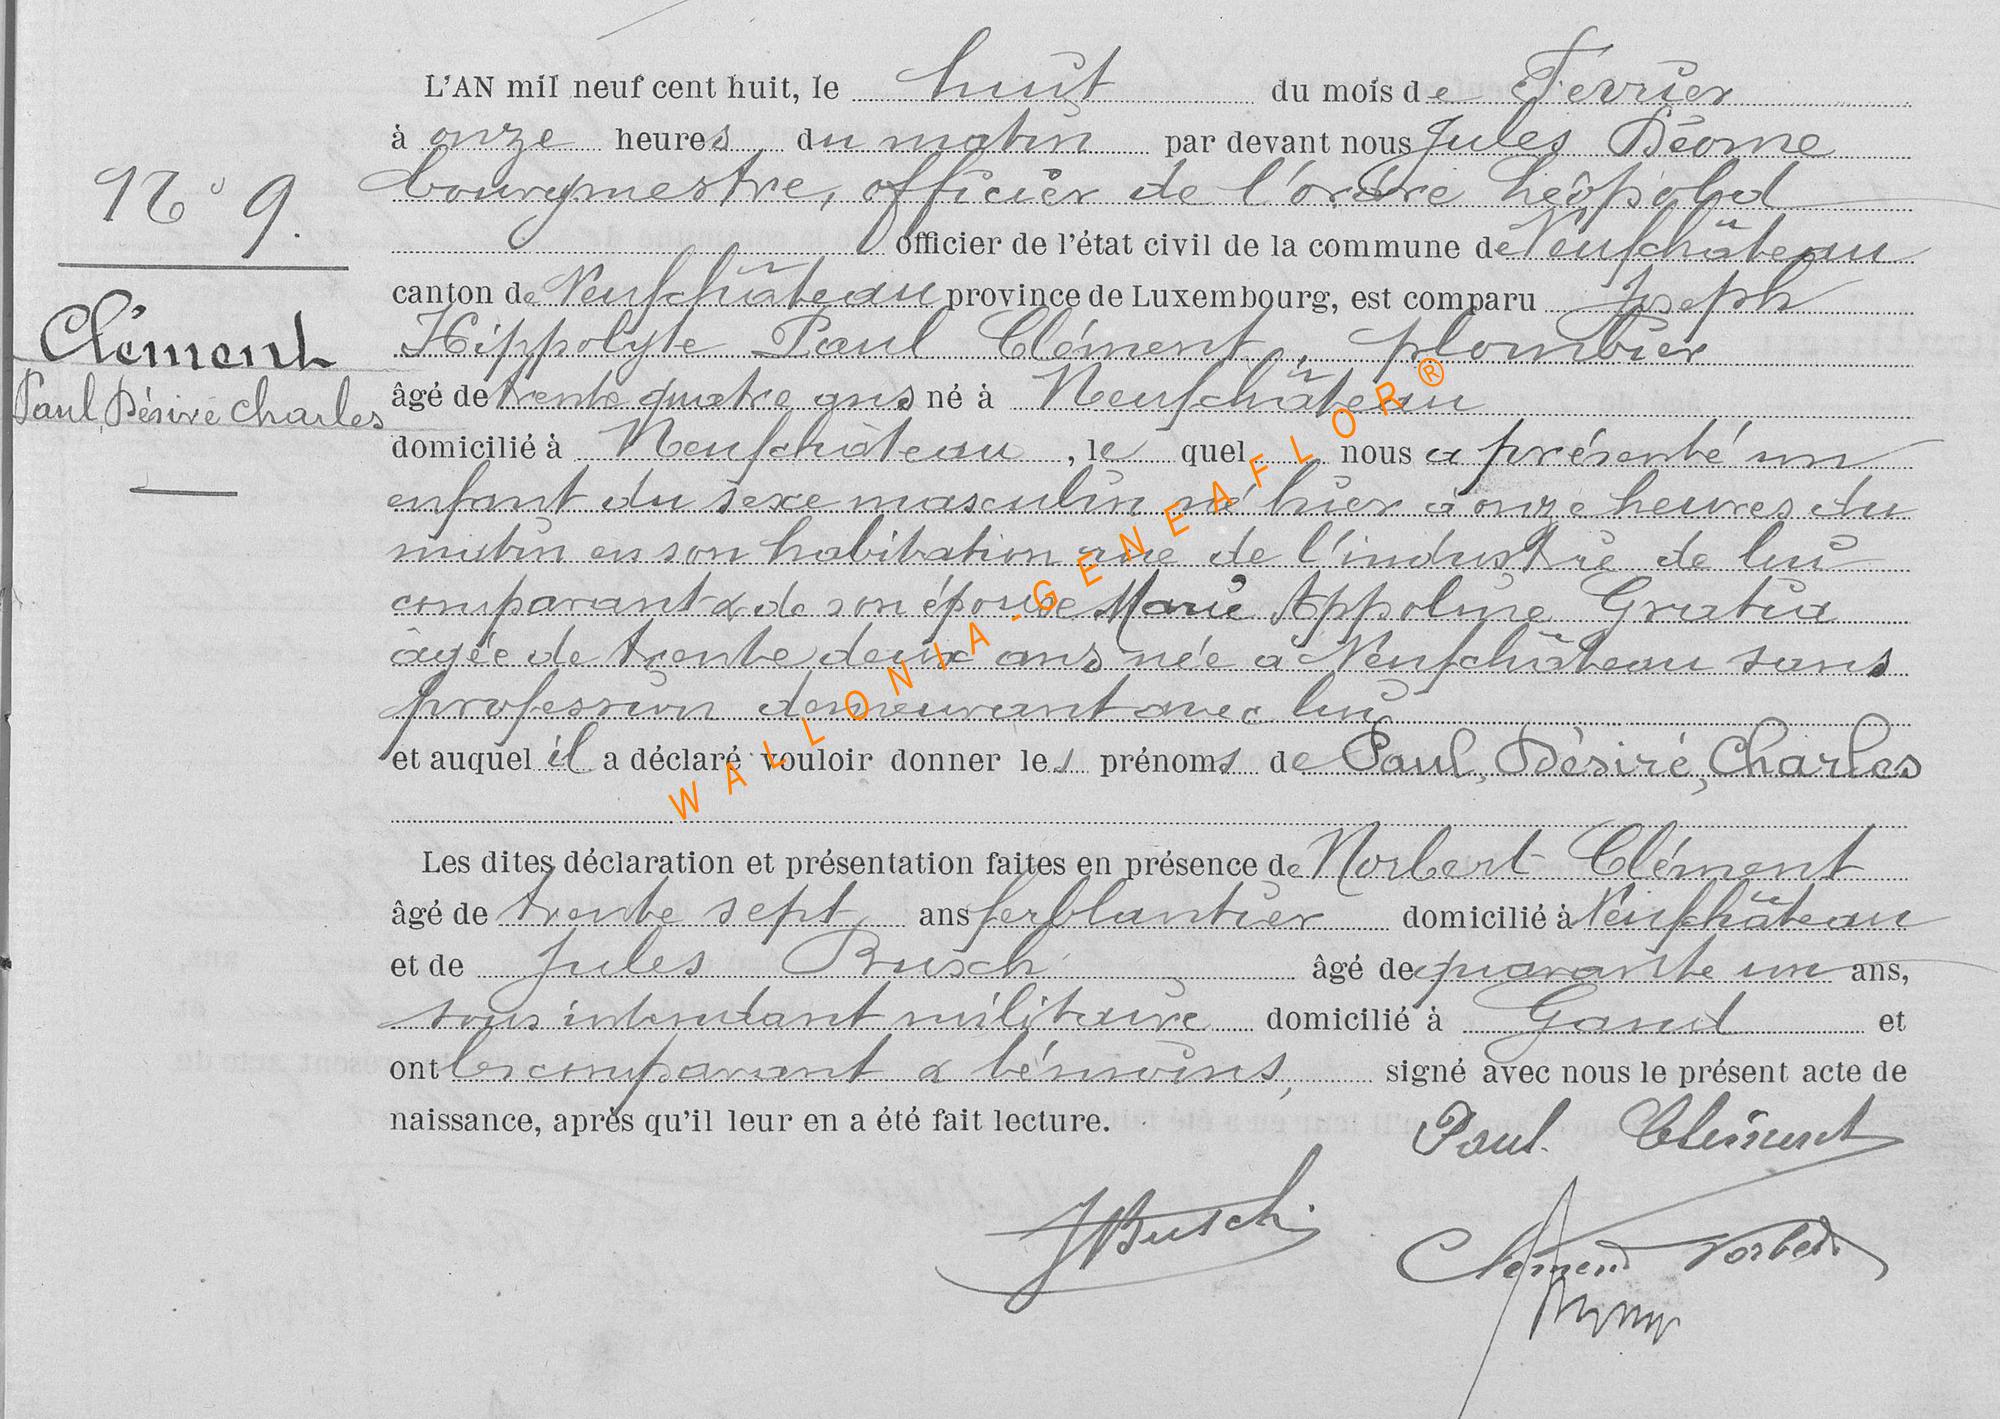 L'AN mil neuf cent huit, le huit du mois de Février
à onze heures du matin par devant nous Jules
bourgmestre, officier de l'ordre Léopold
officier de l'état civil de la commune de Neufchâteau
canton de Neufchâteau province de Luxembourg, est comparu Joseph
Hippolyte Paul Clément, plombier
âgé de trente quatre ans né à Neufchâteau
domicilié à Neufchâteau, le quel nous a présenté un
enfant du sexe masculin né hier à onze heures du
matin en son habitation rue de l'industrie de lui
comparant & de son épouse Marie Appoline Gratia
âgée de trente deux ans née à Neufchâteau sans
profession demeurant avec lui
et auquel il a déclaré vouloir donner les prénoms de Paul, Désiré, Charles
Les dites déclaration et présentation faites en présence de Norbert Clément
âgé de trente sept ans ferblantier domicilié à Neufchâteau
et de Jules Busch âgé de quarante un ans,
sous intendant militaire domicilié à Gand et
ont les comparant & témoins, signé avec nous le présent acte de
naissance, après qu'il leur en a été fait lecture.
Paul Clément
JBusch
Clément Norbert
N° 9.
Clément
Paul, Désiré Charles
WALLONIA-GENEAFLOR®